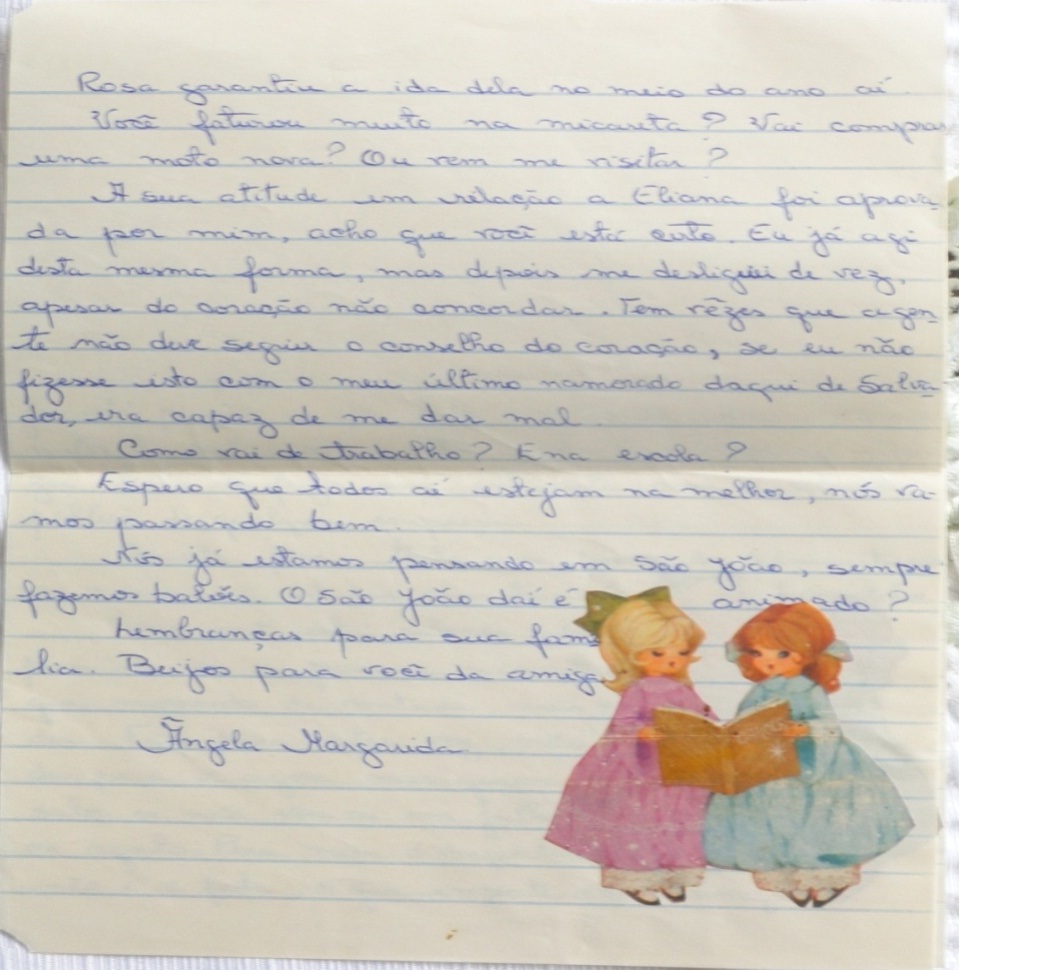 Rosa garantiu a ida dela no meio do ano aí.
Você faturou muito na micareta? Vai comprar
uma moto nova? Ou vem me visitar?
A sua atitude em relação a Eliana foi aprova-
da por mim, acho que você está certo. Eu já agi
desta mesma forma, mas depois me desliguei de vez,
apesar do coração não concordar. Tem vêzes que a gen-
te não deve seguir o conselho do coração, se eu não
fizesse isto com o meu último namorado daqui de Salva-
dor, era capaz de me dar mal.
Como vai de trabalho? E na escola?
Espero que todos aí estejam na melhor, nós va-
mos passando bem.
Nós já estamos pensando em São João, sempre
fazemos balões. O São João daí é animado?
Lembranças para sua famí
lia. Beijos para você da amiga
Ângela Margarida